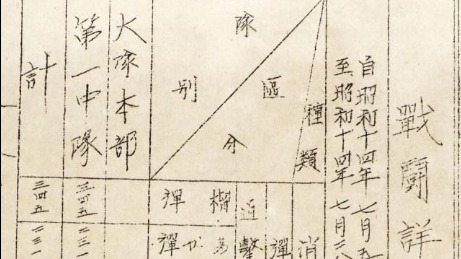 戰鬪詳
自昭和十四年七月
至昭和十四年七月二八
種類
區分
隊別
消
彈
近
擊
榴
彈
彈
大隊本部
第一中隊
三四五
二三一
計
三四五
二三一